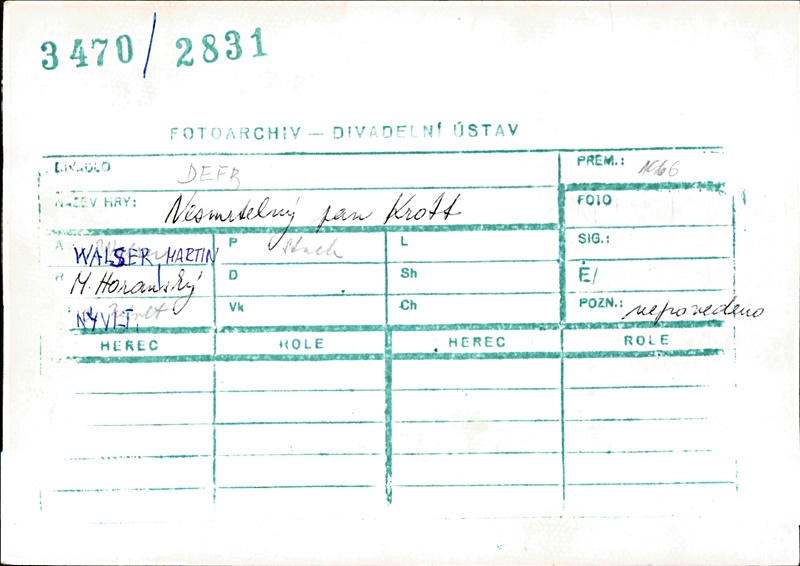 3470/2831
FOTOARCHIV — DIVADELNÍ ÚSTAV
DIVADLO DEFR PREM.: 1966
NÁZEV HRY: Nesmrtelný pan Krott FOTO
A WALSER MARTIN P Stach L SIG.:
R M. Horanský D Sh Č/
NÝVLT. Vk Ch POZN.: nepovedeno
HEREC ROLE HEREC ROLE